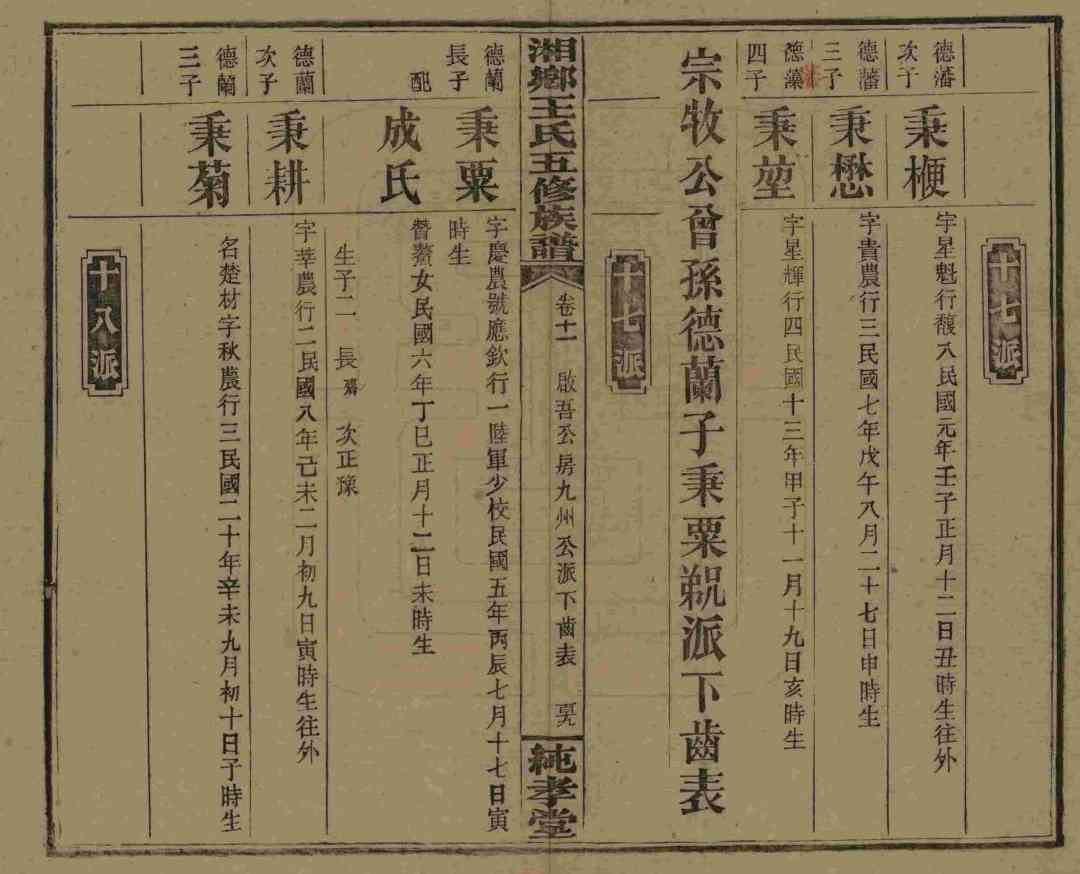 十七派
德藩
次子
秉梗
字星魁行馥八民國元年壬子正月十二日丑時生往外
德藩
三子
秉懋
字貴農行三民國七年戊午八月二十七日申時生
德藻
四子
秉堃
字星輝行四民國十三年甲子十一月十九日亥時生
宗牧公曾孫德蘭子秉粟 派下齒表
十七派
湘鄉王氏五修族譜
卷十一
啟吾公房九州公派下齒表
純孝堂
德蘭
長子
秉粟
字慶農號應欽行一陸軍少校民國五年丙辰七月十七日寅
時生
配
成氏
贊鰲女民國六年丁巳正月十二日未時生
生子二 長 次正豫
德蘭
次子
秉耕
字莘農行二民國八年己未二月初九日寅時生往外
德蘭
三子
秉菊
名楚材字秋農行三民國二十年辛未九月初十日子時生
十八派